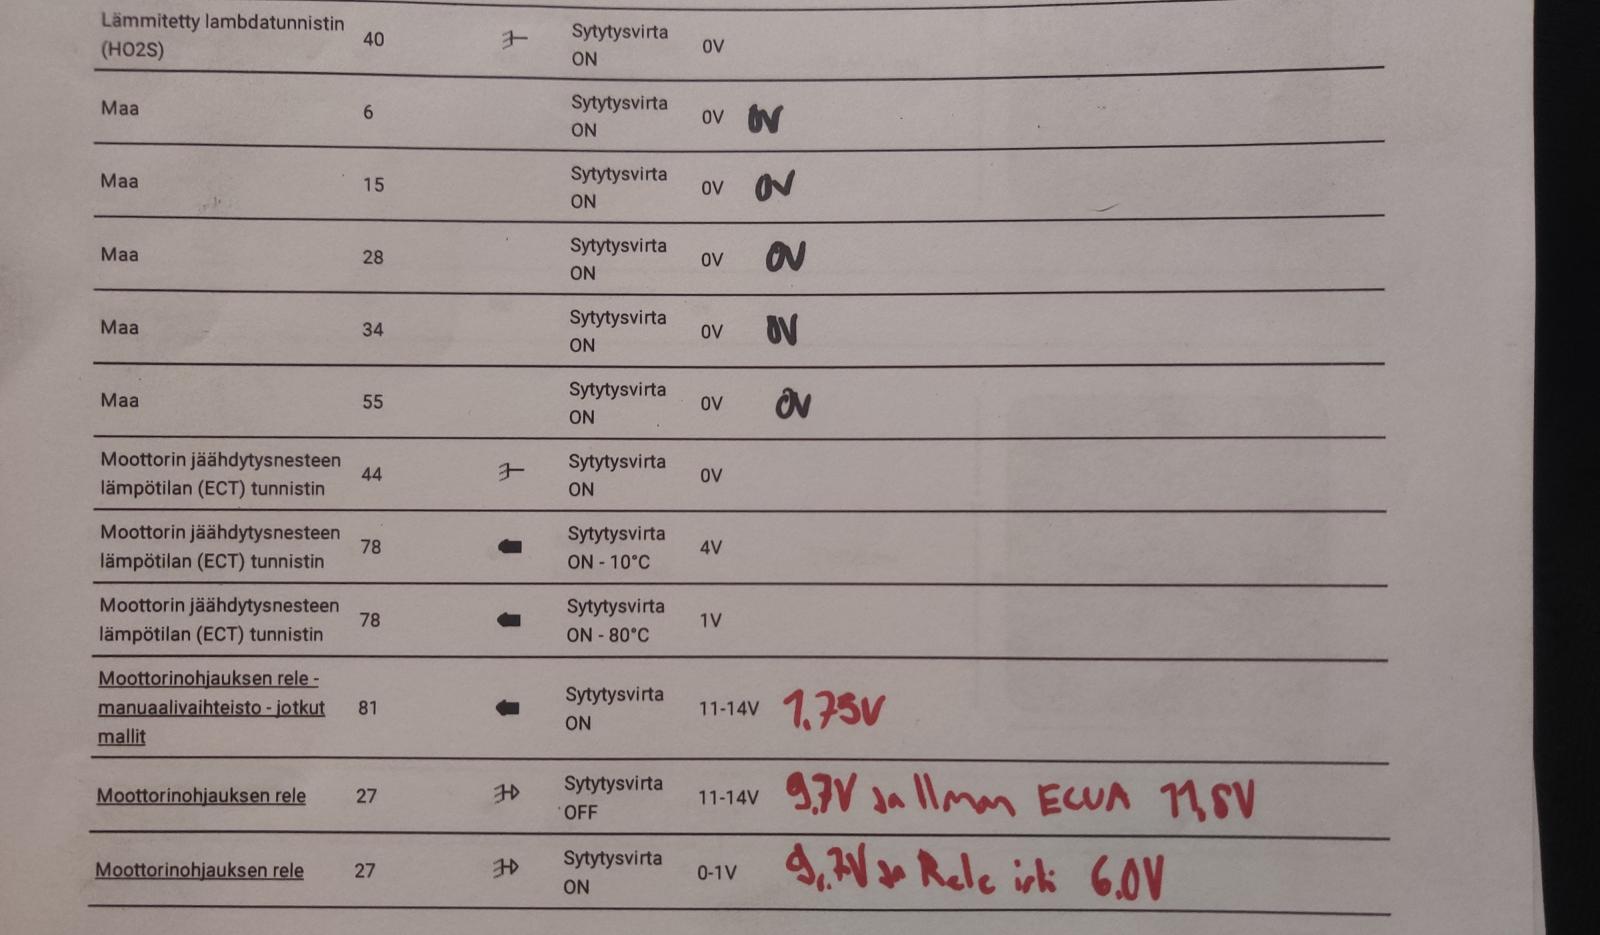 Lämmitetty lambdatunnistin
(HO2S) 40 Sytytysvirta
ON 0V
Maa 6 Sytytysvirta
ON 0V 0V
Maa 15 Sytytysvirta
ON 0V 0V
Maa 28 Sytytysvirta
ON 0V 0V
Maa 34 Sytytysvirta
ON 0V 0V
Maa 55 Sytytysvirta
ON 0V 0V
Moottorin jäähdytysnesteen
lämpötilan (ECT) tunnistin 44 Sytytysvirta
ON 0V
Moottorin jäähdytysnesteen
lämpötilan (ECT) tunnistin 78 Sytytysvirta
ON - 10°C 4V
Moottorin jäähdytysnesteen
lämpötilan (ECT) tunnistin 78 Sytytysvirta
ON - 80°C 1V
Moottorinohjauksen rele -
manuaalivaihteisto - jotkut
mallit 81 Sytytysvirta
ON 11-14V 1.75V
Moottorinohjauksen rele 27 Sytytysvirta
OFF 11-14V 9,7V Ja Ilman ECUA 11,8V
Moottorinohjauksen rele 27 Sytytysvirta
ON 0-1V 9,7V Ja Rele irti 6.0V